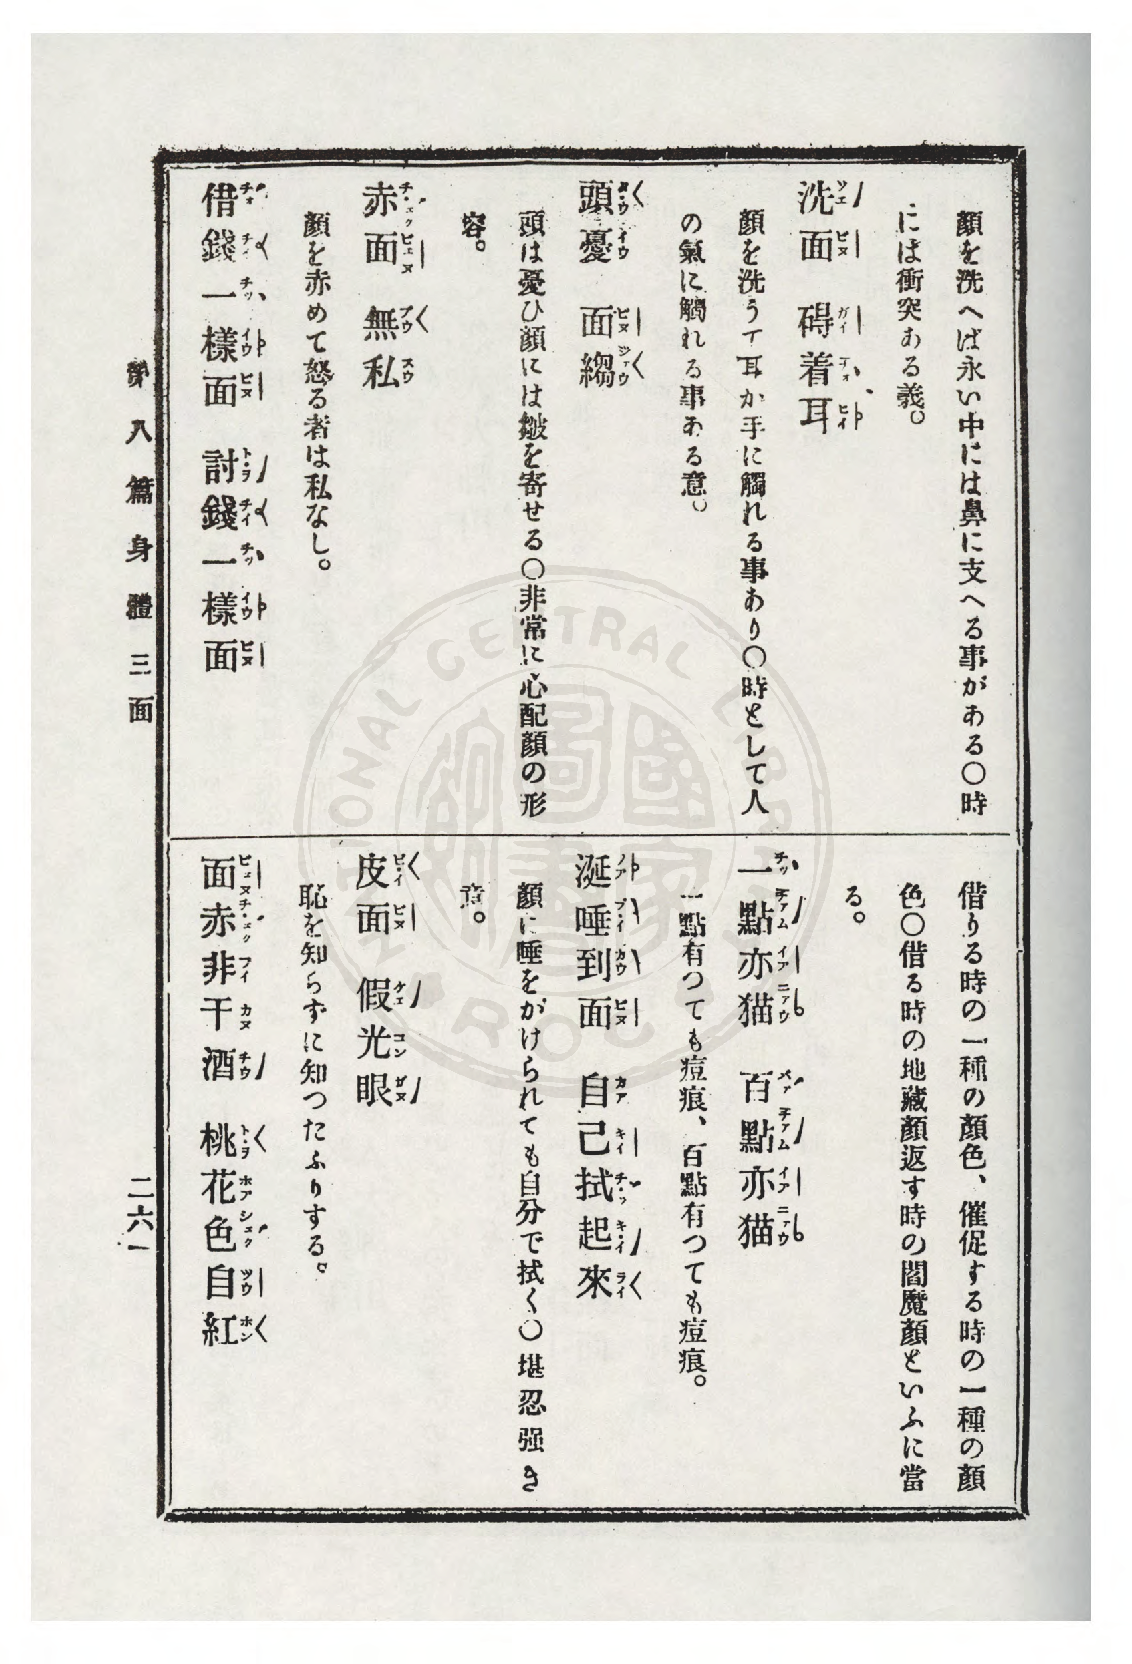 顔を洗へば永い中には鼻に支へる事がある〇時
には衝突ある義。
洗面　碍着耳
顔を洗うて耳が手に觸れる事あり〇時として人
の氣に觸れる事ある意。
頭憂　面縐
頭は憂ひ顔には皺を寄せる〇非常に心配顔の形
容。
赤面　無私
顔を赤めて怒る者は私なし。
借錢一樣面　討錢一樣面
借りる時の一種の顔色、催促する時の一種の顔
色〇借る時の地藏顔返す時の閻魔顔といふに當
る。
一點亦猫　百點亦猫
一點有つても痘痕、百點有つても痘痕。
涎唾到面　自己拭起來
顔に唾をかけられても自分で拭く〇堪忍强き
意。
皮面　假光眼
恥を知らずに知つたふりする。
面赤非干酒　桃花色自紅
第八篇身體　三面
二六一
NATIONAL CENTRAL LIBRARY
ROC
國家圖書館